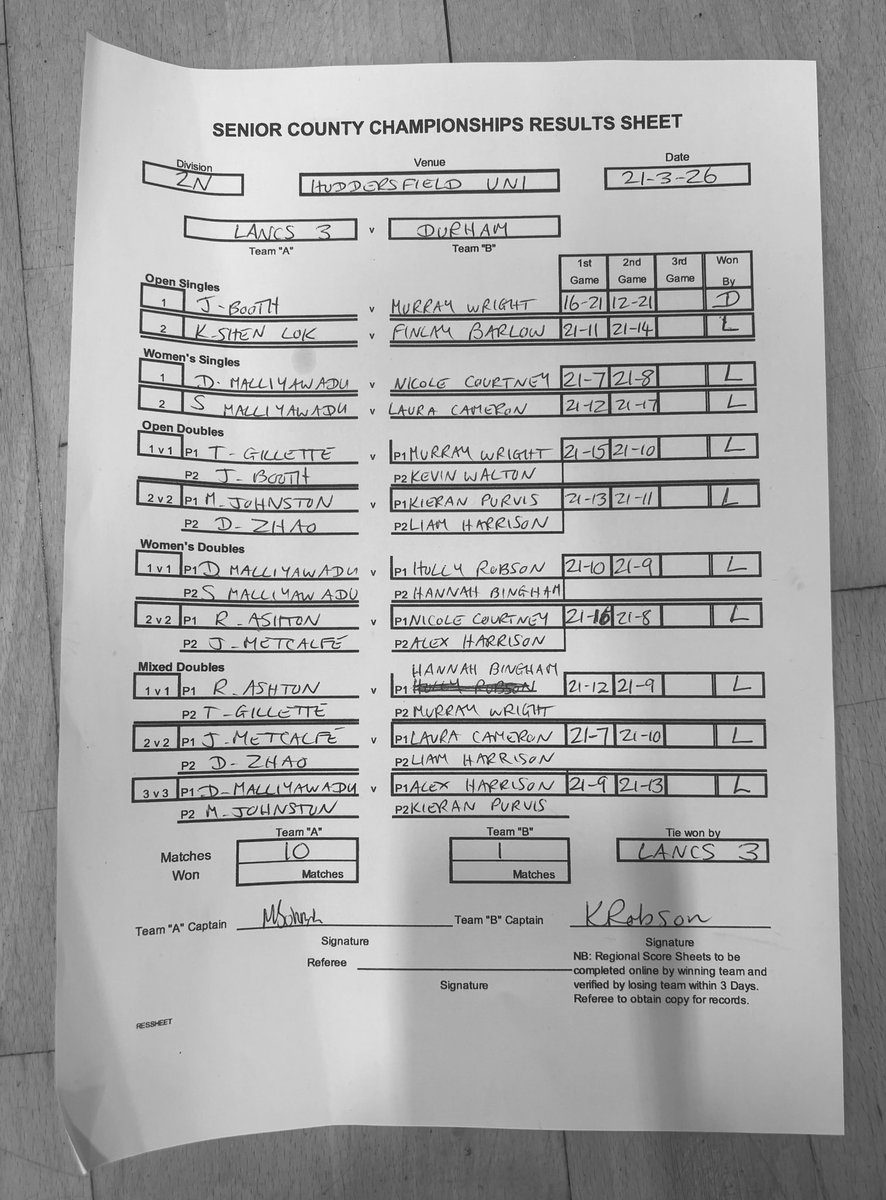 SENIOR COUNTY CHAMPIONSHIPS RESULTS SHEET
Division Venue Date
2N HUDDERSFIELD UNI 21-3-26
LANCS 3 v DURHAM
Team "A" Team "B"
1st Game 2nd Game 3rd Game Won By
Open Singles
1 J-BOOTH v MURRAY WRIGHT 16-21 12-21 D
2 K-SHEN LOK v FINLAY BARLOW 21-11 21-14 L
Women's Singles
1 D. MALLIYAWADU v NICOLE COURTNEY 21-7 21-8 L
2 S MALLIYAWADU v LAURA CAMERON 21-12 21-17 L
Open Doubles
1 v 1 P1 T-GILLETTE v P1 MURRAY WRIGHT 21-15 21-10 L
P2 J-BOOTH P2 KEVIN WALTON
2 v 2 P1 M.JOHNSTON v P1 KIERAN PURVIS 21-13 21-11 L
P2 D-ZHAO P2 LIAM HARRISON
Women's Doubles
1 v 1 P1 D MALLIYAWADU v P1 HOLLY ROBSON 21-10 21-9 L
P2 S MALLIYAWADU P2 HANNAH BINGHAM
2 v 2 P1 R. ASHTON v P1 NICOLE COURTNEY 21-16 21-8 L
P2 J-METCALFE P2 ALEX HARRISON
Mixed Doubles HANNAH BINGHAM
1 v 1 P1 R.ASHTON v P1 HOLLY ROBSON 21-12 21-9 L
P2 T-GILLETTE P2 MURRAY WRIGHT
2 v 2 P1 J-METCALFE v P1 LAURA CAMERON 21-7 21-10 L
P2 D-ZHAO P2 LIAM HARRISON
3 v 3 P1 D-MALLIYAWADU v P1 ALEX HARRISON 21-9 21-13 L
P2 M-JOHNSTON P2 KIERAN PURVIS
Team "A" Team "B" Tie won by
Matches Won 10 Matches 1 Matches LANCS 3
Team "A" Captain Team "B" Captain K Robson
Signature Signature
Referee
Signature
NB: Regional Score Sheets to be
completed online by winning team and
verified by losing team within 3 Days.
Referee to obtain copy for records.
RESSHEET